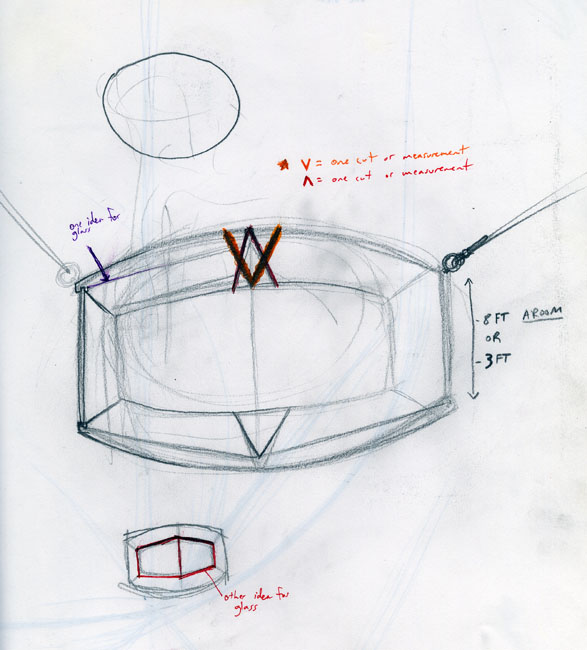 V = one cut or measurement
Λ = one cut or measurement
one idea for
glass
- 8 FT A ROOM
OR
- 3 FT
other idea for
glass